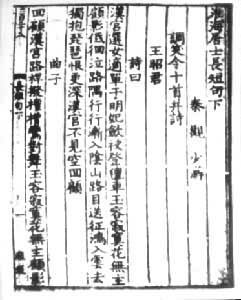 淮海居士長短句下
秦觀 少游
調笑令十首并詩
王昭君
詩曰
漢宮選女適單于明妃斂袂登氊車玉容寂寞花無主
顧影低徊泣路隅行行漸入陰山路目送征鴻入雲去
獨抱琵琶恨更深漢宮不見空回顧
曲子
回顧漢宮路捍撥檀槽鸞對舞玉容寂寞花無主顧影